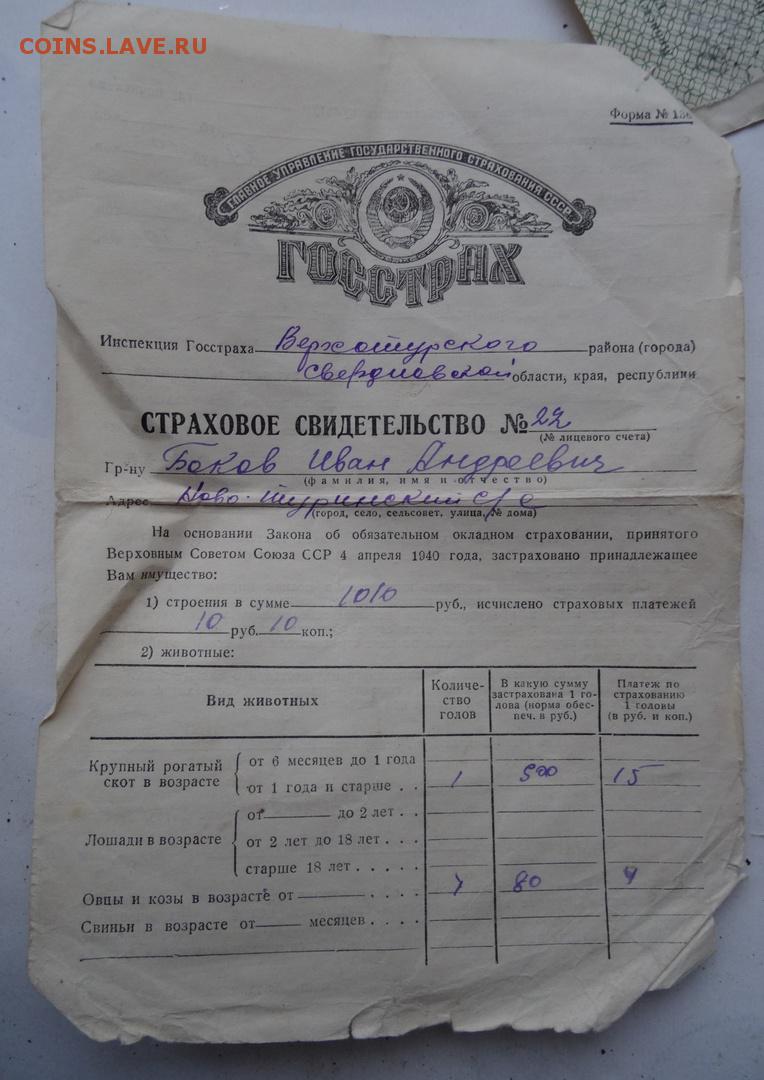 COINS.LAVE.RU
Форма № 136
ГЛАВНОЕ УПРАВЛЕНИЕ ГОСУДАРСТВЕННОГО СТРАХОВАНИЯ СССР
ГОССТРАХ
Инспекция Госстраха Верхотурского района (города)
Свердловской области, края, республики
СТРАХОВОЕ СВИДЕТЕЛЬСТВО № 22
(№ лицевого счета)
Гр-ну Боков Иван Андреевич
(фамилия, имя и отчество)
Адрес Ново-Туринский с/с
(город, село, сельсовет, улица, № дома)
На основании Закона об обязательном окладном страховании, принятого
Верховным Советом Союза ССР 4 апреля 1940 года, застраховано принадлежащее
Вам имущество:
1) строения в сумме 1010 руб., исчислено страховых платежей
10 руб. 10 коп.;
2) животные:
Вид животных
Количе-
ство
голов
В какую сумму
застрахована 1 го-
лова (норма обес-
печ. в руб.)
Платеж по
страхованию
1 головы
(в руб. и коп.)
Крупный рогатый
скот в возрасте
от 6 месяцев до 1 года
от 1 года и старше . . 1 500 15
Лошади в возрасте
от до 2 лет . .
от 2 лет до 18 лет . . .
старше 18 лет . . . . .
Овцы и козы в возрасте от . . . . 80
Свиньи в возрасте от месяцев . . . .